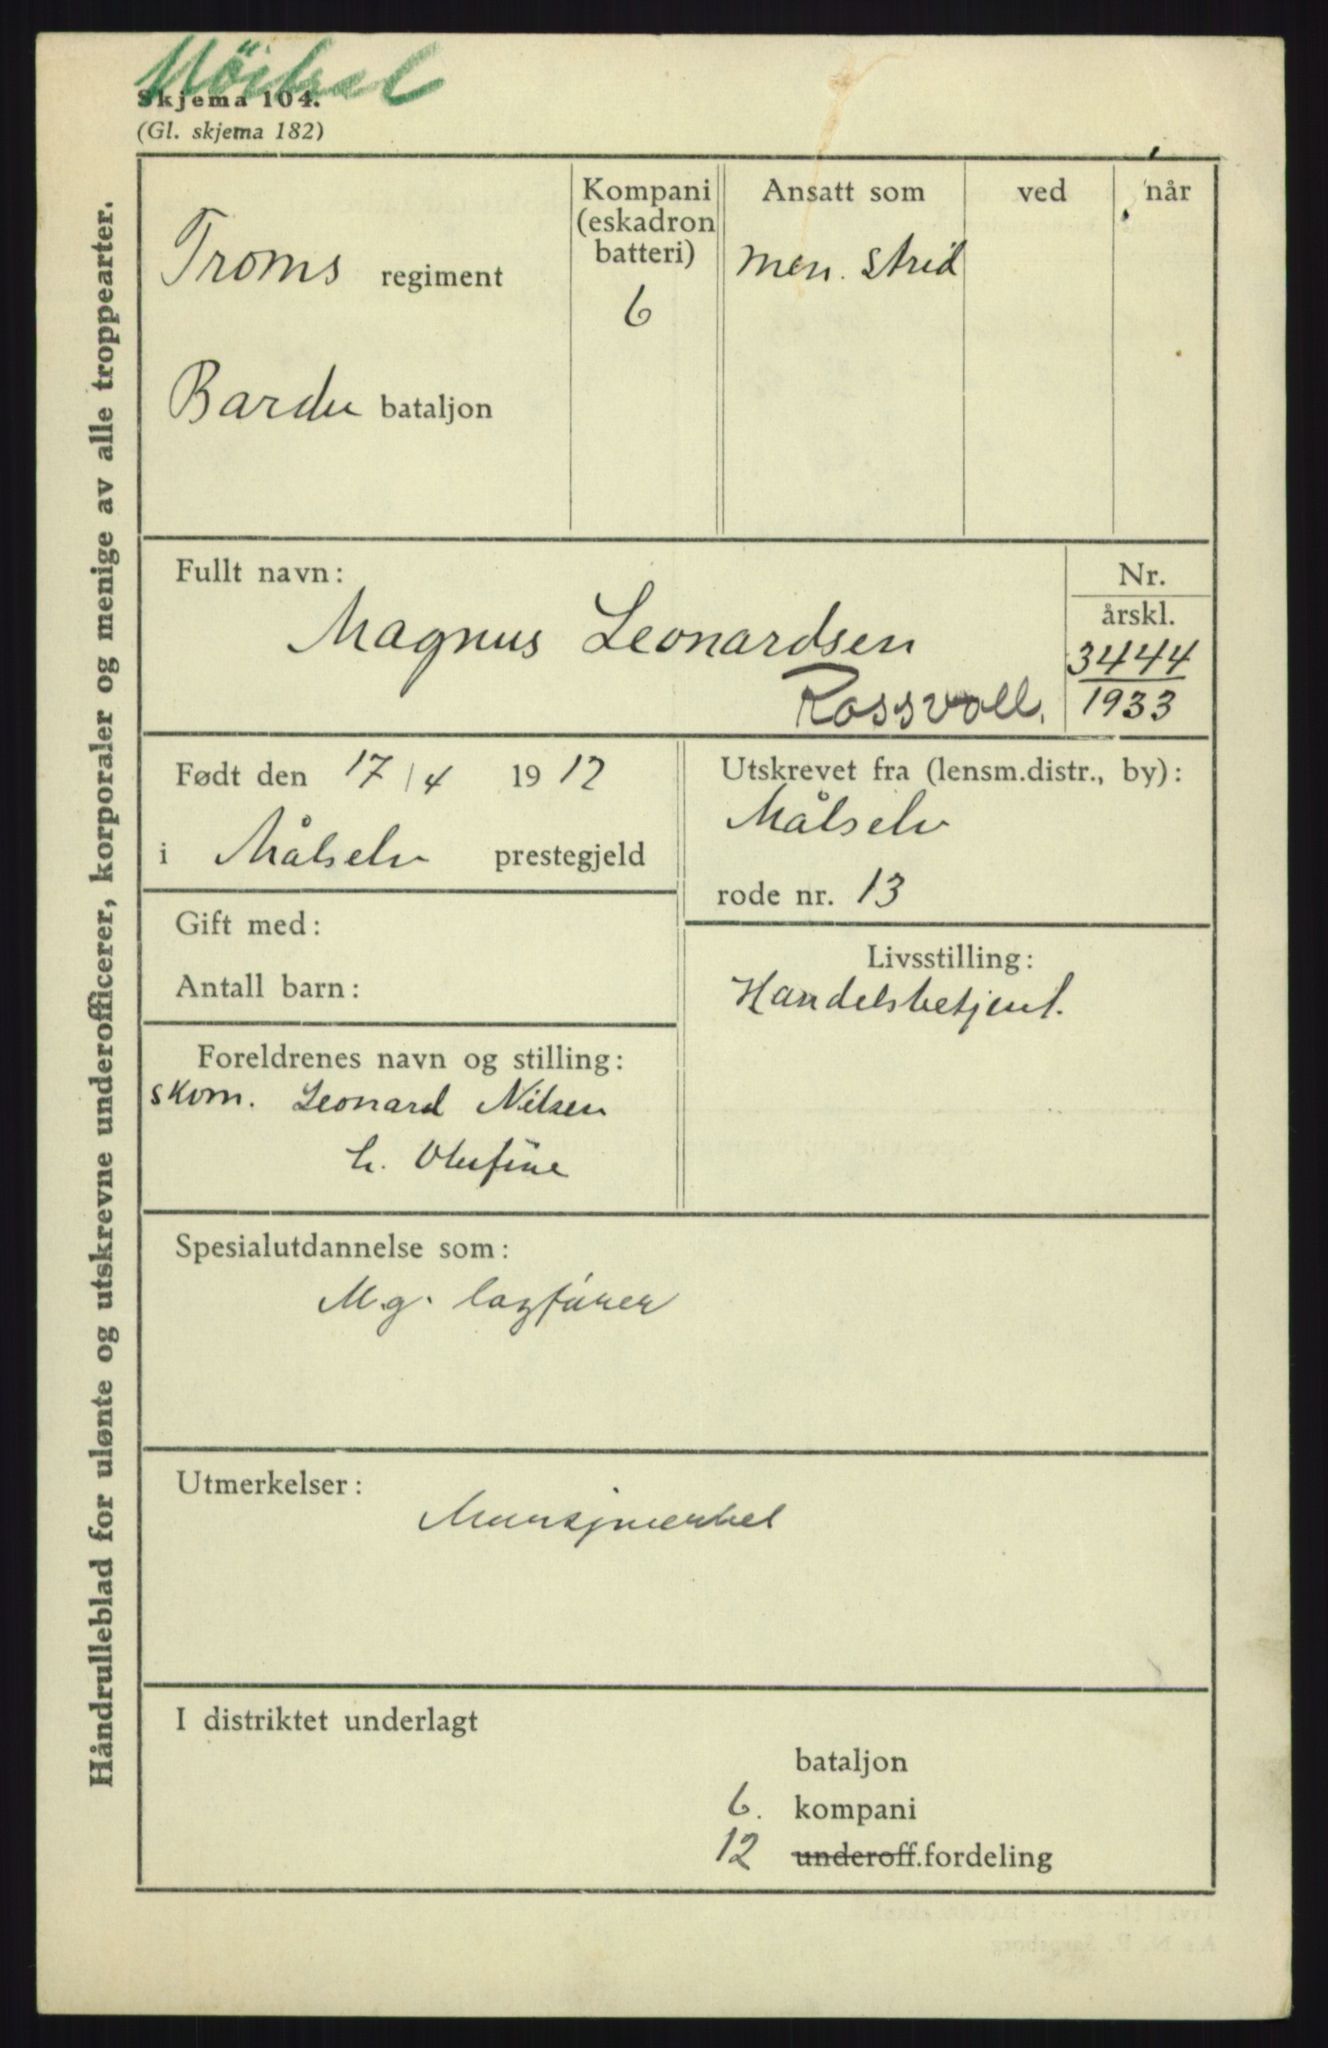 Skjema 104.
(Gl. skjema 182)
Håndrulleblad for ulønte og utskrevne underofficerer, korporaler og menige av alle troppearter.
Troms regiment
Bardu bataljon
Kompani
(eskadron
batteri)
6
Ansatt som
men. strid
ved
når
Fullt navn:
Magnus Leonardsen
Rossvoll.
Nr.
årskl.
3444
1933
Født den 17/4 1912
i Målselv prestegjeld
Utskrevet fra (lensm.distr., by):
Målselv
rode nr. 13
Gift med:
Antall barn:
Livsstilling:
Handelsbetjent.
Foreldrenes navn og stilling:
skom. Leonard Nilsen
h. Olufine
Spesialutdannelse som:
M.g. lagfører
Utmerkelser:
Marsjmerket
I distriktet underlagt
bataljon
6. kompani
12 underoff.fordeling